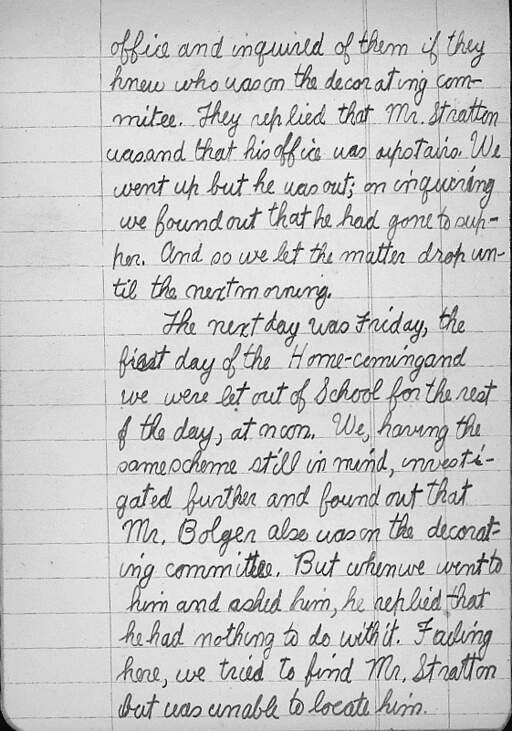 office and inquired of them if they
knew who was on the decorating com-
mitee. They replied that Mr. Stratton
was and that his office was upstairs. We
went up but he was out; on inquiring
we found out that he had gone to sup-
per. And so we let the matter drop un-
til the next morning.
The next day was Friday, the
first day of the Home-coming and
we were let out of School for the rest
of the day, at noon. We, having the
same scheme still in mind, investi-
gated further and found out that
Mr. Bolger also was on the decorat-
ing committee. But when we went to
him and asked him, he replied that
he had nothing to do with it. Failing
here, we tried to find Mr. Stratton
but was unable to locate him.